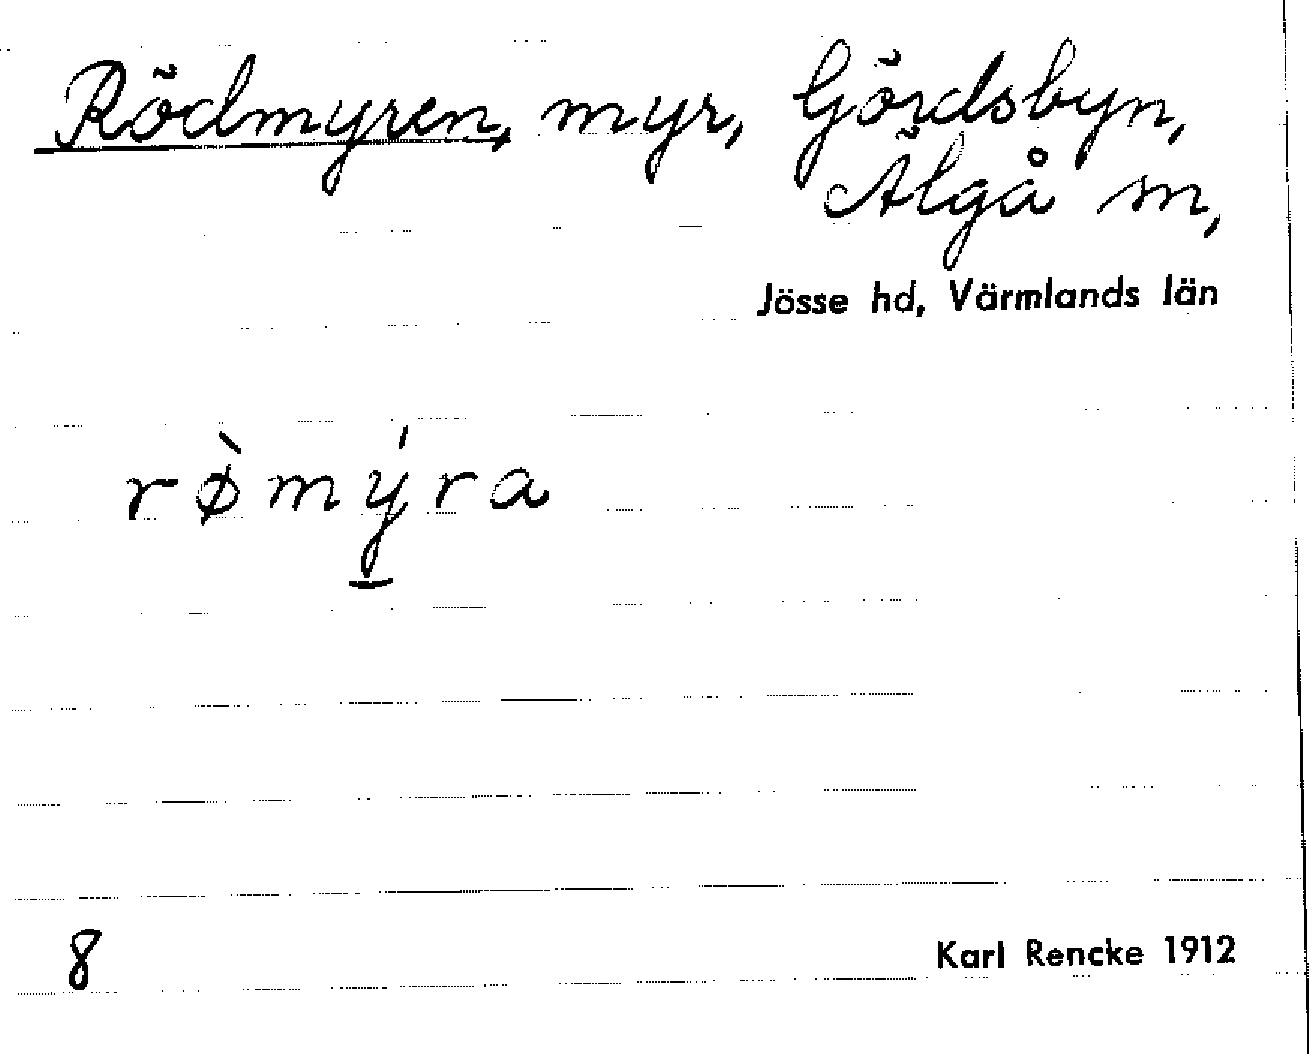 Rödmyren, myr, Gördsbyn,
Älgå sn,
Jösse hd, Värmlands län
rø̀mý̠ra
8
Karl Rencke 1912